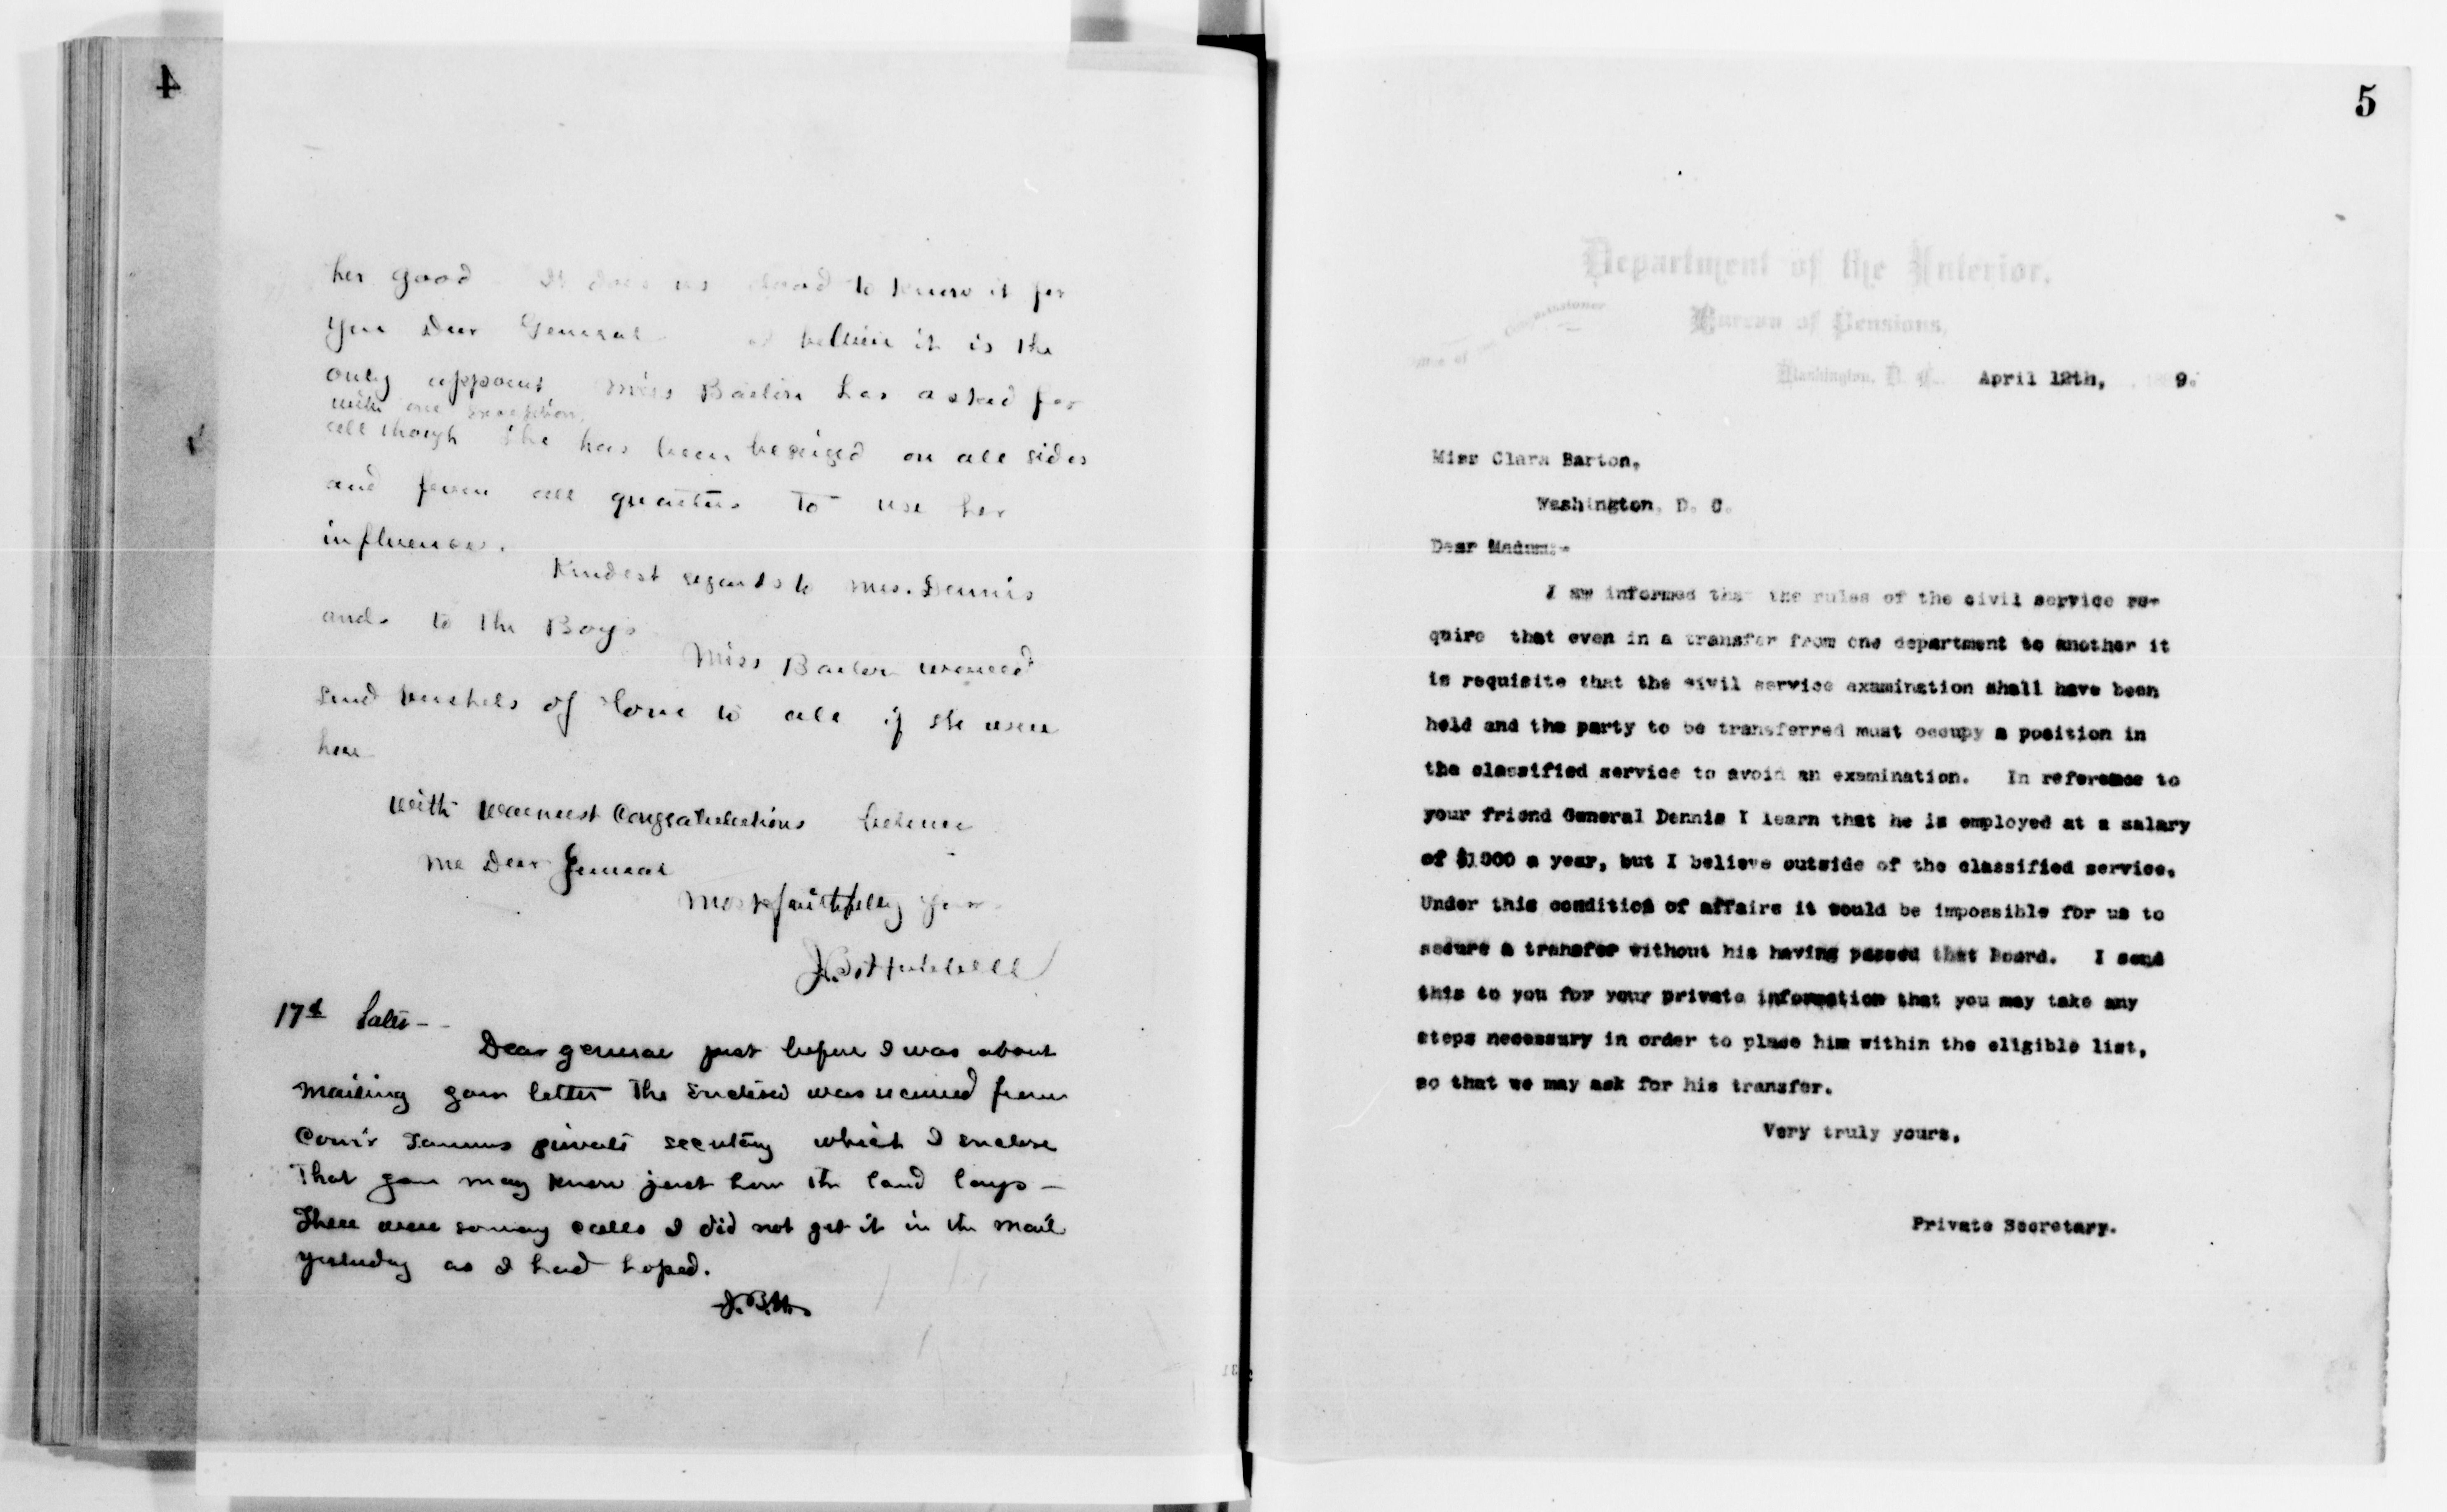 4
her good It does us Good to know it for
you Dear General I believe it is the
only appoint Miss Barton has asked for
with one exception,
all though she has been beseiged on all sides
and from all quarters to use her
influence.
Kindest regards to Mrs. Dennis
and to the Boys
Miss Barton would
send bushels of love to all if she were
here
With warmest Congratulations believe
me Dear General
Most faithfully yours
J.B. Hubbell
17th Later - -
Dear general just before I was about
mailing your letter the enclosed was received from
Com'r Tanners private secretary which I enclose
That you may know just how the land lays —
There were so many calls I did not get it in the mail
yesterday as I had hoped.
J.B.H.
5
Department of the Interior,
Bureau of Pensions,
Office of the Commissioner
Washington, D. C. April 12th, 9.
Miss Clara Barton,
Washington, D. C.
Dear Madam:-
I am informed that the rules of the civil service re-
quire that even in a transfer from one department to another it
is requisite that the civil service examination shall have been
held and the party to be transferred must occupy a position in
the classified service to avoid an examination. In reference to
your friend General Dennis I learn that he is employed at a salary
of $1000 a year, but I believe outside of the classified service.
Under this condition of affairs it would be impossible for us to
secure a transfer without his having passed that Board. I send
this to you for your private information that you may take any
steps necessary in order to place him within the eligible list,
so that we may ask for his transfer.
Very truly yours,
Private Secretary.